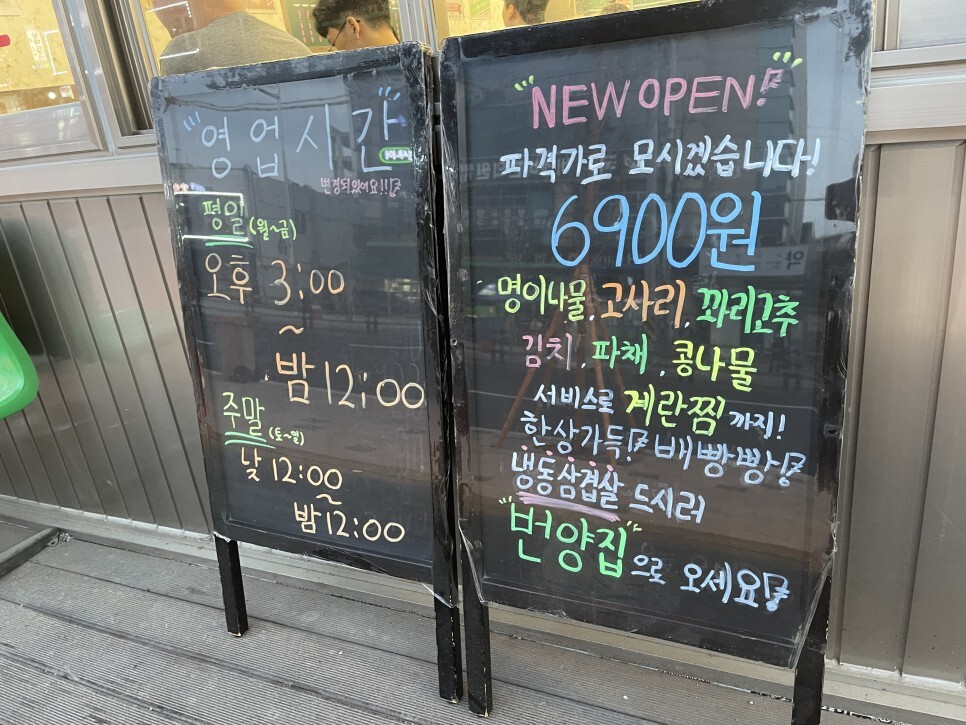 영업시간
변경되었어요!!!
평일 (월~금)
오후 3:00
~
밤 12:00
주말 (토~일)
낮 12:00
~
밤 12:00
"NEW OPEN!"
파격가로 모시겠습니다!
6900원
명이나물, 고사리, 꽈리고추
김치, 파채, 콩나물
서비스로 계란찜 까지!
한상가득! 배빵빵!
냉동삼겹살 드시러
"번양집"으로 오세요!
약